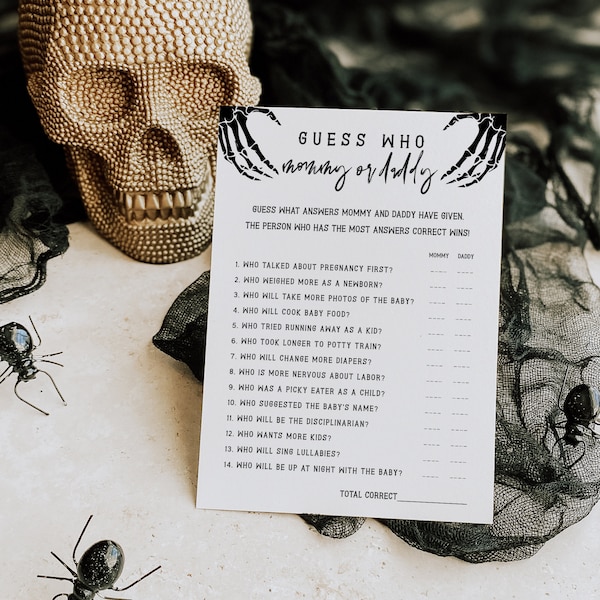 GUESS WHO
mommy or daddy
GUESS WHAT ANSWERS MOMMY AND DADDY HAVE GIVEN.
THE PERSON WHO HAS THE MOST ANSWERS CORRECT WINS!
MOMMY DADDY
1. WHO TALKED ABOUT PREGNANCY FIRST?
2. WHO WEIGHED MORE AS A NEWBORN?
3. WHO WILL TAKE MORE PHOTOS OF THE BABY?
4. WHO WILL COOK BABY FOOD?
5. WHO TRIED RUNNING AWAY AS A KID?
6. WHO TOOK LONGER TO POTTY TRAIN?
7. WHO WILL CHANGE MORE DIAPERS?
8. WHO IS MORE NERVOUS ABOUT LABOR?
9. WHO WAS A PICKY EATER AS A CHILD?
10. WHO SUGGESTED THE BABY'S NAME?
11. WHO WILL BE THE DISCIPLINARIAN?
12. WHO WANTS MORE KIDS?
13. WHO WILL SING LULLABIES?
14. WHO WILL BE UP AT NIGHT WITH THE BABY?
TOTAL CORRECT